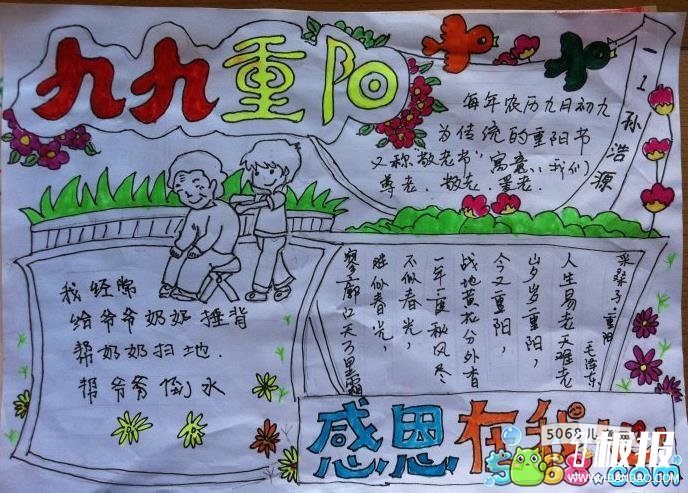 九九重阳
一1孙浩源
每年农历九月初九
为传统的重阳节
又称"敬老节"寓意:我们
尊老、敬老、爱老.
我经常
给爷爷奶奶捶背
帮奶奶扫地.
帮爷爷倒水
采桑子 重阳
毛泽东
人生易老天难老
岁岁重阳,
今又重阳,
战地黄花分外香
一年一度秋风
不似春光,
胜似春光,
寥廓江天万里霜
感恩在我
5068儿
板报
WWW.BANBAO.COM